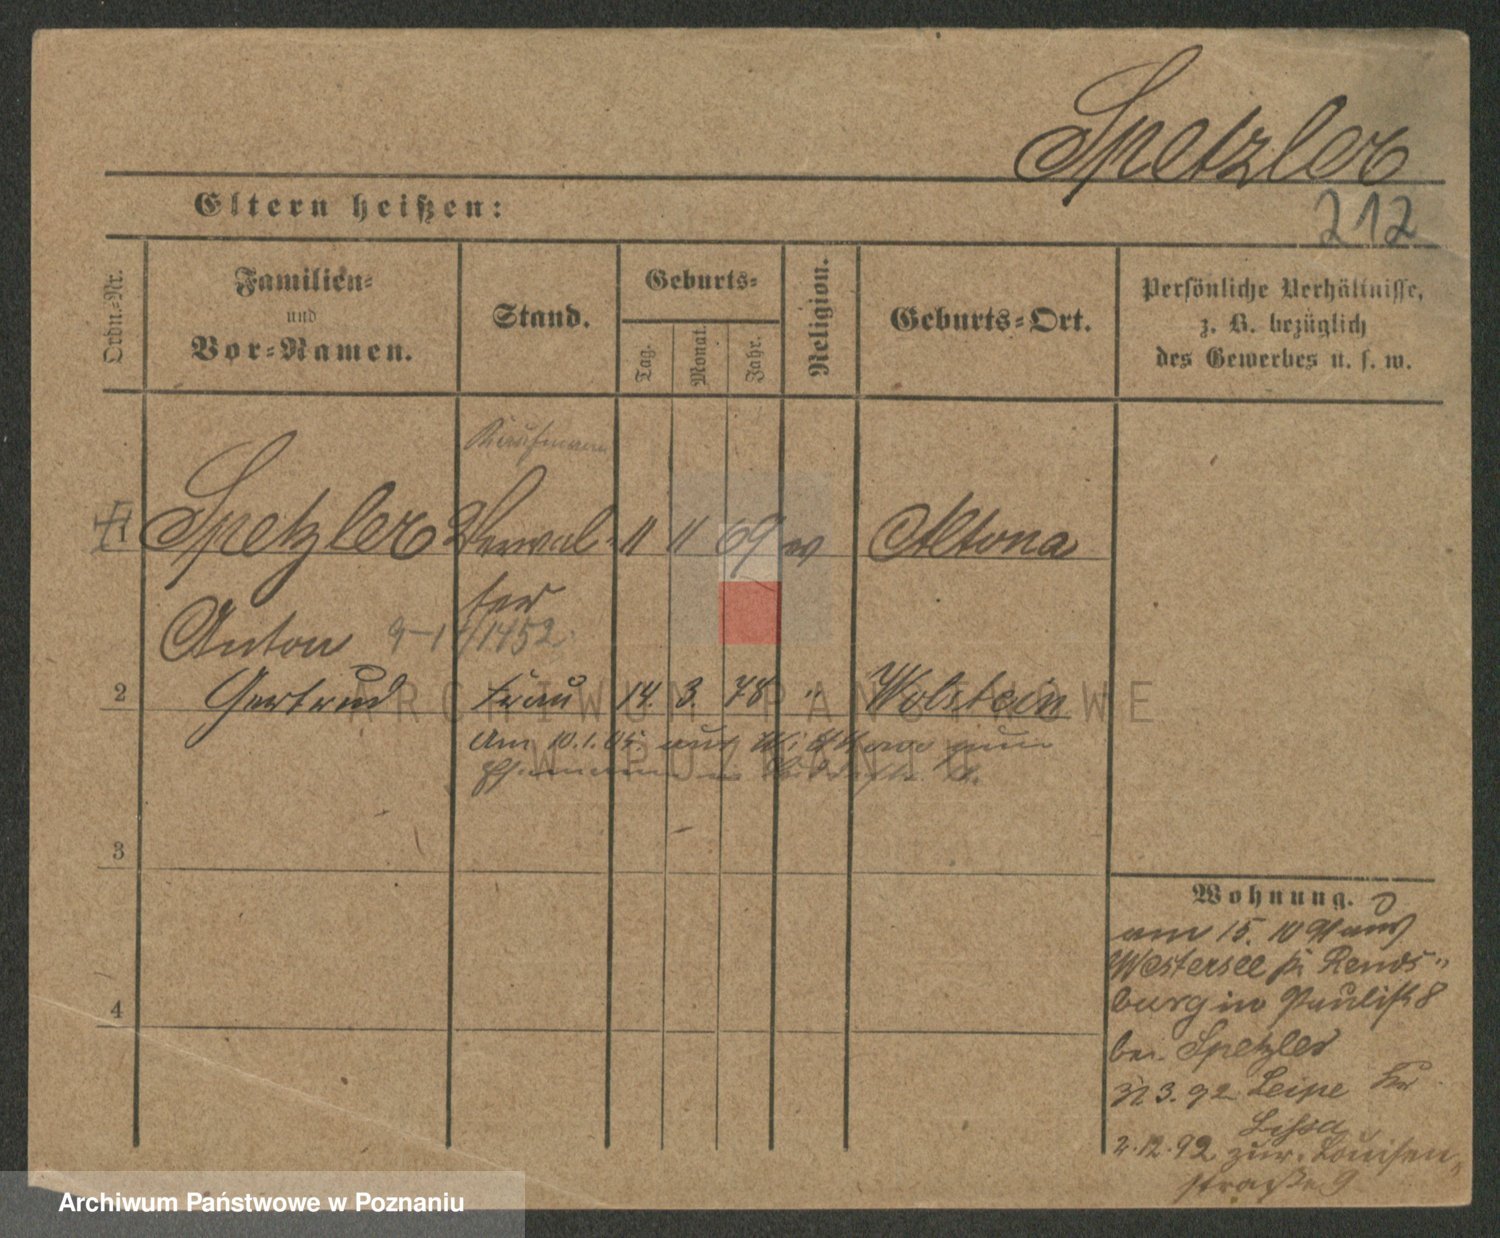 Spetzler
Eltern heißen:
212
Ordn.-Nr.
Familien-
und
Vor-Namen.
Stand.
Geburts-
Tag.
Monat.
Jahr.
Religion.
Geburts-Ort.
Persönliche Verhältnisse,
z. B. bezüglich
des Gewerbes u. s. w.
Kaufmann
1 Spetzler Verwal- 11 11 69 ev Altona
ter
Anton
2 Gertrud Frau 14. 3. 78 " Wolstein
Am 10.1.05. aus zum
Ehemann
3
4
Wohnung.
am 15. 10 91 aus
Westersee bei Rends-
burg in Paulist. 8
bei Spetzler
31 3. 92 Leipe Kr
Lissa
2.12.92 zur. Louisen-
straße 9
ARCHIWUM PAŃSTWOWE
W POZNANIU
Archiwum Państwowe w Poznaniu